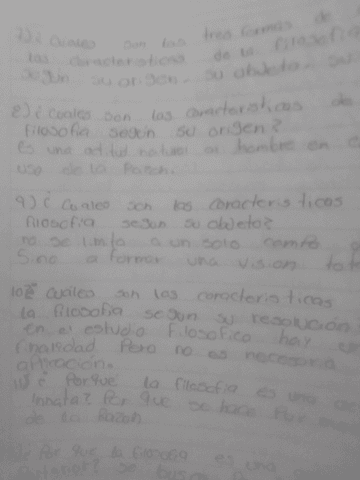 7) ¿Cuales son las tres formas de
las caracteristicas de la filosofia
según su origen, su objeto
8) ¿Cuales son las caracteristicas de
filosofia según su origen?
Es una actitud natural al hombre en
uso de la Razón.
9) ¿Cuales son las caracteristicas
filosofia segun su objeto?
no se limita a un solo campo
Sino a formar una visión
10) ¿Cuales son las caracteristicas
la filosofia segun su resolución
en el estudio filosofico hay
finalidad pero no es necesaria
11) ¿Porqué la filosofia es una
innata? Por que se hace Por
de la Razon
¿Por que la filosofia es una
se busca